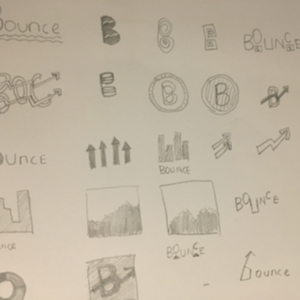 Bounce B B B BOUNCE
B B B
OUNCE
BOUNCE
BOUNCE
NCE BOUNCE
B Bounce